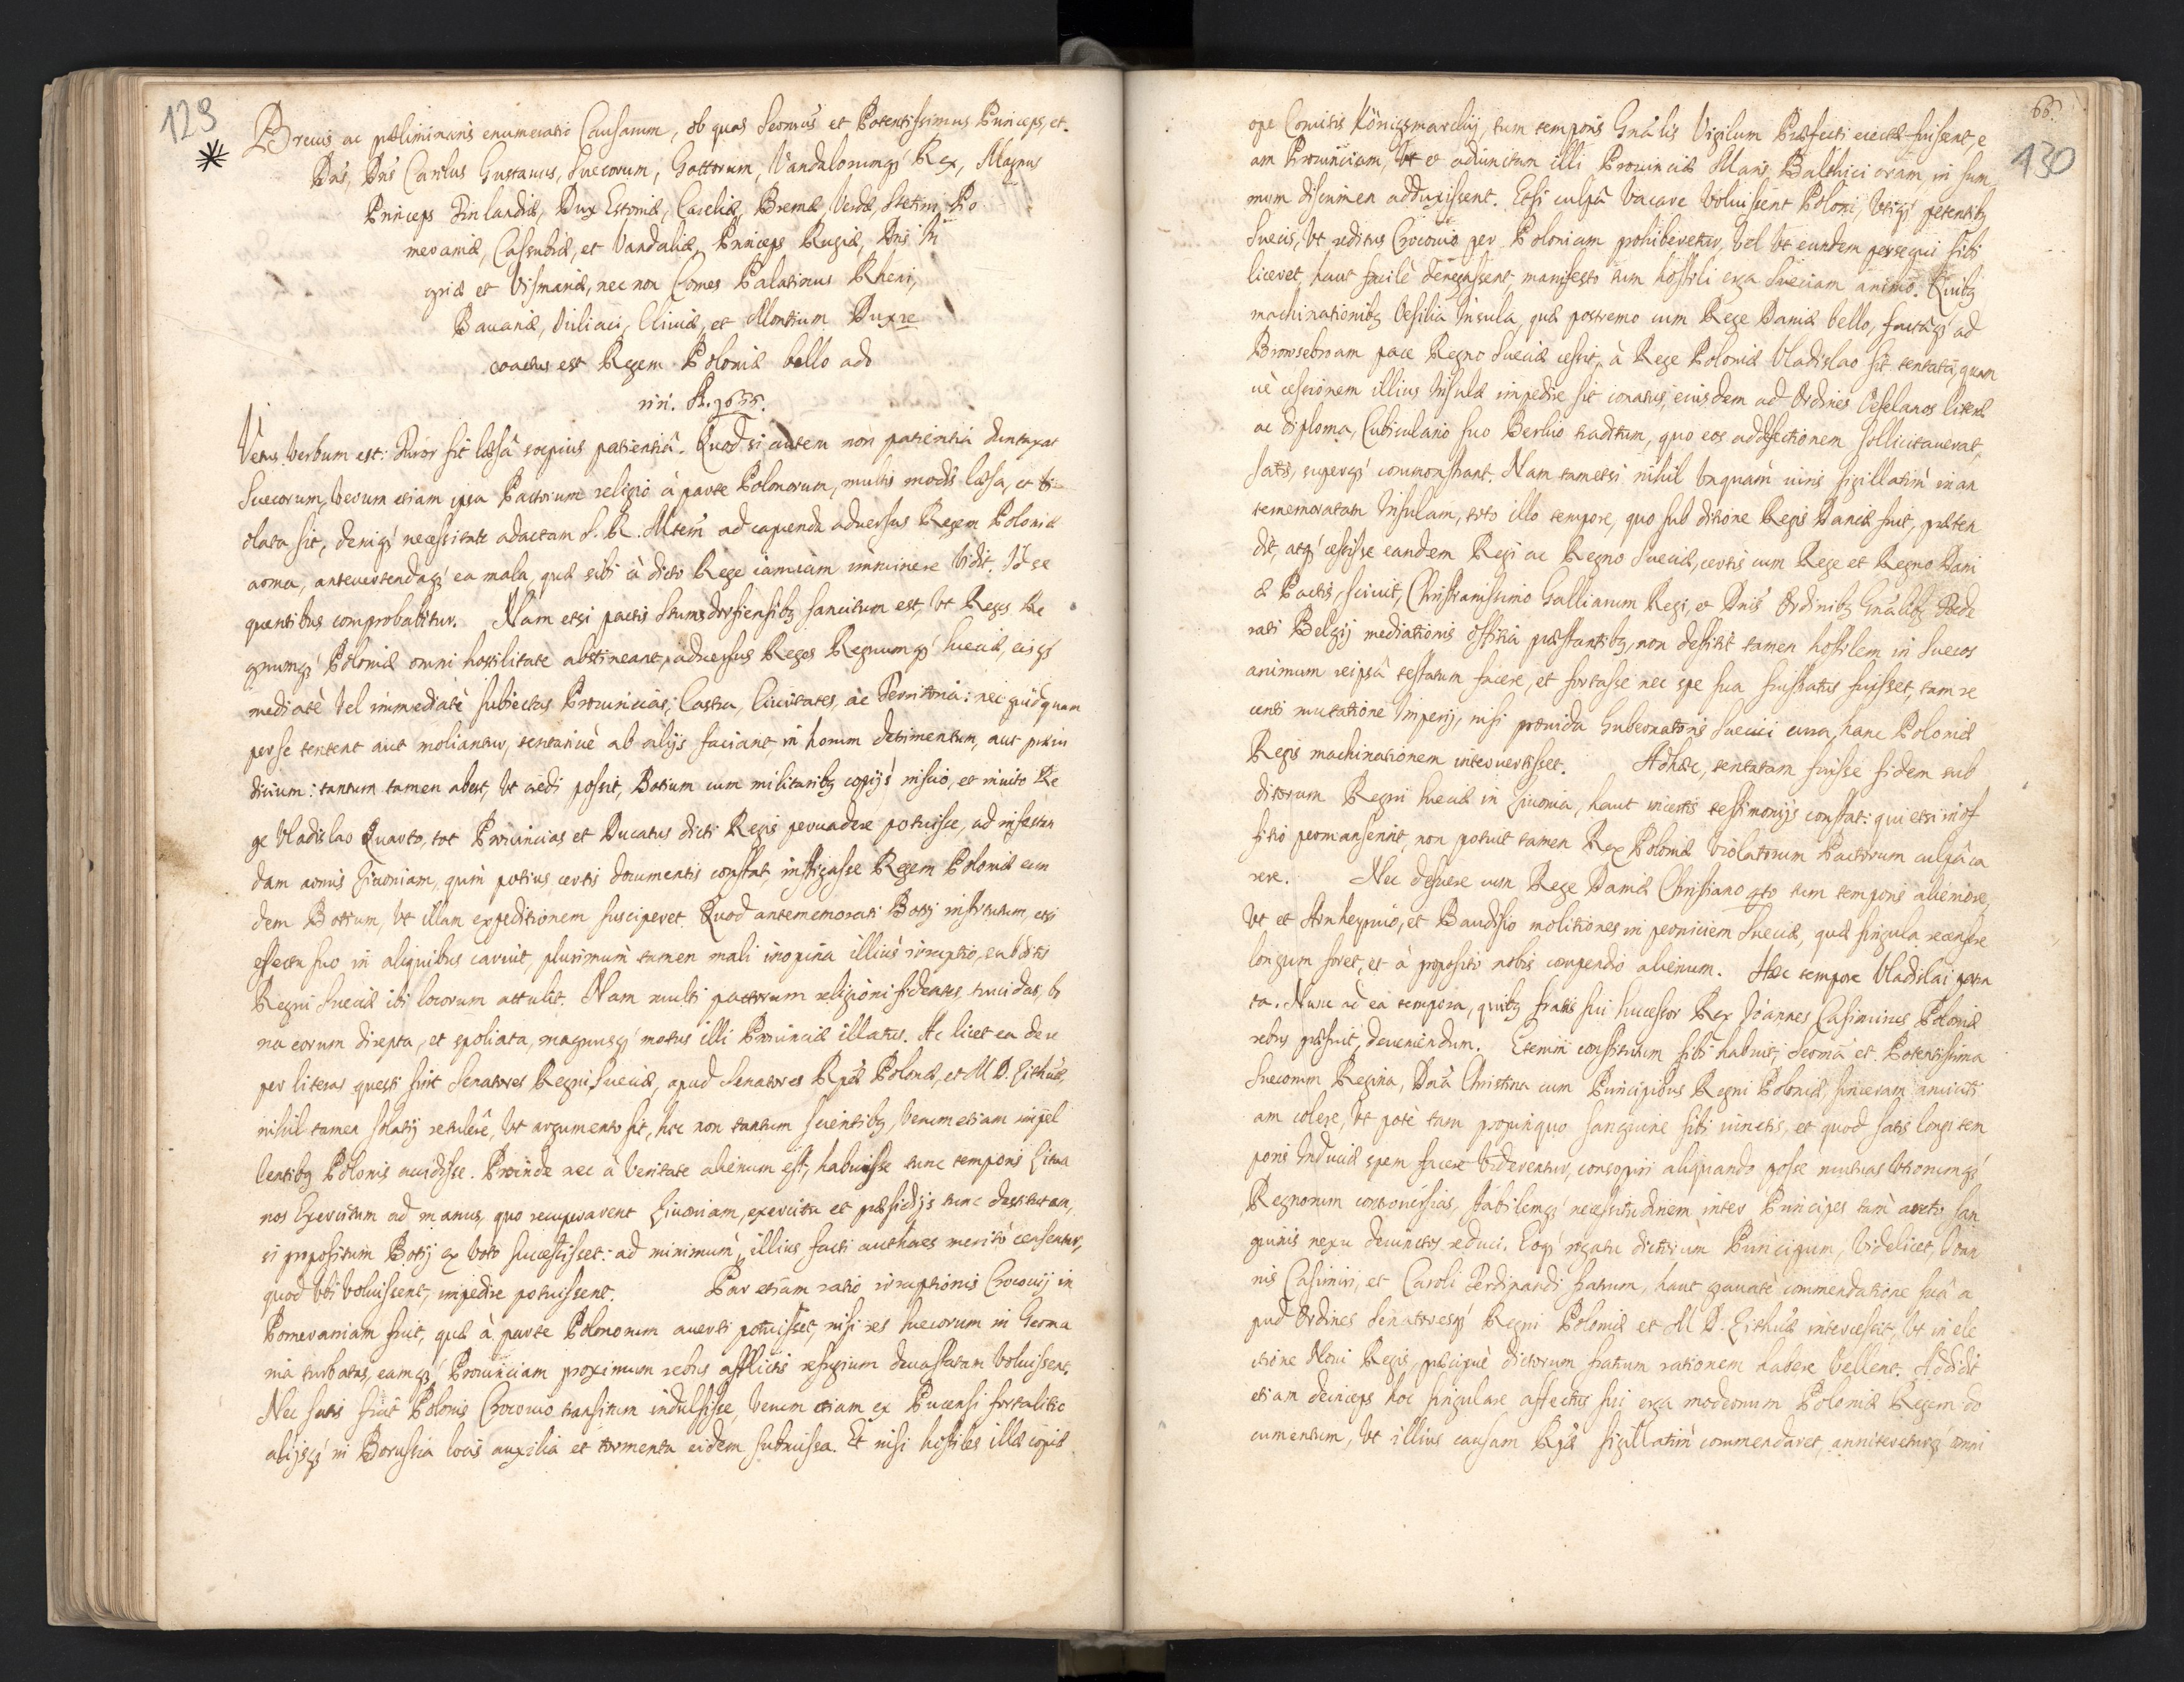 129
Brevis ac præliminaris enumeratio Causarum, ob quas Serenmus et Potentissimus Princeps, et
Dns, Dns Carolus Gustavus, Suecorum, Gottorum, Vandalorumq́ Rex, Magnus
Princeps Finlandiæ, Dux Estoniæ, Careliæ, Bremæ, Verdæ, Stetini, Po
meraniæ, Cassubiæ, et Vandaliæ, Princeps Rugiæ, Dns In
griæ et Vismariæ, nec non Comes Palatinus Rheni,
Bavariæ, Iuliaci, Cliviæ, et Montium Dux re
coactus est Regem Poloniæ bello ado
riri. A. 1655.
Vetus verbum est: Furor fit læsâ sæpius patientiâ. Quod si autem non patientia duntaxat
Suecorum, verum etiam ipsa Pactorum religio à parte Polonorum, multis modis læsa, et vi¬
olata sit, deniq́ necessitate adactam S. R. Mtem ad capienda adversus Regem Poloniæ
arma, antevertendaq́ ea mala, quæ sibi à dicto Rege iamiam imminere vidit. Id se
quentibus comprobabitur. Nam etsi pactis Stumsdorfiensibq sancitum est, Vt Reges Re
gnumq́ Poloniæ omni hostilitate abstineant, adversus Reges Regnumq́ Sueciæ, eisq́
mediatè vel immediatè subiectas Provincias, Castra, Civitates, ac Territoria: nec quidquam
per se tentent aut moliantur, tentarivè ab alijs faciant, in horum detrimentum, aut præiu
dicium: tantum tamen abest, Vt credi possit, Botium cum militaribq copijs inscio, et invito Re
ge Vladislao Quarto, tot Provincias et Ducatus dicti Regis pervadere potuisse, ad infestan
dam armis Livoniam, quin potius certis documentis constat, instigasse Regem Poloniæ eun
dem Bottum, Vt illam expeditionem susciperet. Quod antememorati Botij institutum, etsi
effectu suo in aliquibus caruit, plurimum tamen mali inopina illius irruptio, subditis
Regni Sueciæ ibi locorum attulit. Nam multi pactorum religioni fidentes trucidati, bo
na eorum direpta, et spoliata, magnusq́ metus illi Provinciæ illatus. Ac licet ea de re
per literas questi sint Senatores Regni Sueciæ, apud Senatores Rpcæ Polonæ, et M. D. Lithuæ,
nihil tamen solatij retulere, Vt argumento sit, hæc non tantum scientibq, verum etiam impel
lentibq Polonis accidisse. Proinde nec à Veritate alienum est, habuisse tunc temporis Litua
nos Exercitum ad manus, quo recuperarent Livoniam, exercitu et præsidijs tunc destitutam,
si propositum Botij ex voto successisset: ad minimum, illius facti authores meritò censentur,
quod vbi voluissent, impedire potuissent. Par etiam ratio irruptionis Crocovij in
Pomeraniam fuit, quæ à parte Polonorum averti potuisset, nisi res Suecorum in Germa
nia turbatas, eamq́ Provinciam proximum rebus afflictis refugium devastatam voluissent.
Nec satis fuit Polonis Crocovio transitum indulsisse, verum etiam ex Pucensi fortalitio
alijsq́ in Borussia locis auxilia et tormenta eidem submissa. Et nisi hostiles illæ copiæ
66.
130
ope Comitis Königsmarckij, tum temporis Gnâlis Vigilum Præfecti eiectæ fuissent, e
am Provinciam, Vt et adiunctam illi Provinciæ Maris Balthici oram, in sum
mum discrimen adduxissent. Etsi culpâ vacare voluissent Poloni, Vtiq́ petentibq
Suecis, Vt reditus Crocovio per Poloniam prohiberetur, vel Vt eundem persequi sibi
liceret, haut facilè denegassent, manifesto tum hostili erga Sueciam animo. Quibq
machinationibq Oesilia Insula, quæ postremo cum Rege Daniæ bello, factâq́ ad
Bromsebroam pace Regno Sueciæ cessit, à Rege Poloniæ Vladislao sit tentata, quam
vè cessionem illius Insulæ impedire sit conatus, eiusdem ad Ordines Oeselanos literæ
ac diploma, Cubiculario suo Berlio traditum, quo eos ad defectionem sollicitaverat,
satis, superq́ commonstrant. Nam tametsi nihil vnquam iuris sigillatim in an
tememoratam Insulam, toto illo tempore, quo sub ditione Regis Daniæ fuit, præten
dit, atq́ cessisse eandem Regi ac Regno Sueciæ, certis cum Rege et Regno Dani
æ Pactis, scivit, Christianissimo Galliarum Regi, et Dnis Ordinibq Gnâlibq Fœde
rati Belgij mediationis officia præstantibq, non destitit tamen hostilem in Suecos
animum reipsâ testatum facere, et fortasse nec spe sua frustratus fuisset, tam re
centi mutatione Imperij, nisi provida Gubernatoris Suecici cura, hanc Poloniæ
Regis machinationem intervertisset. Adhæc, tentatam fuisse fidem sub
ditorum Regni Sueciæ in Livonia, haut incertis testimonijs constat: qui etsi in of
fitio permanserint, non potuit tamen Rex Poloniæ violatorum Pactorum culpâ ca
rere. Nec defuere cum Rege Daniæ Christiano 4to tum temporis alieniore,
Vt et Arnheymio, et Baudisio molitiones in perniciem Sueciæ, quæ singula recensere
longum foret, et à proposito nobis compendio alienum. Hæc tempore Vladislai patra
ta. Nunc ad ea tempora, quibq fratris sui successor Rex Joannes Casimirus Poloniæ
rebus præfuit, deveniendum. Etenim constitutum sibi habuit, Serenma et Potentissima
Suecorum Regina, Dna Christina cum Principibus Regni Poloniæ sinceram amiciti
am colere, Vt potè tam propinquo sanguine sibi iunctis, et quod satis longi tem
poris Induciæ spem facere viderentur, consopiri aliquando posse mutuas vtrorumq́
Regnorum controversias, stabilemq́ necessitudinem inter Principes tam arcto san
guinis nexu devinctos reduci. Eoq́ rogatu dictorum Principum, videlicet, Ioan
nis Casimiri, et Caroli Ferdinandi fratrum, haut gravatè commendatione suâ a
pud Ordines Senatoresq́ Regni Poloniæ et M. D. Lithuæ intercessit, Vt in ele
ctione Novi Regis, præcipuè dictorum fratrum rationem habere vellent. Addidit
etiam deinceps hoc singulare affectus sui erga modernum Poloniæ Regem do
cumentum, Vt illius causam Rpcæ sigillatim commendaret, annitereturq́ omni